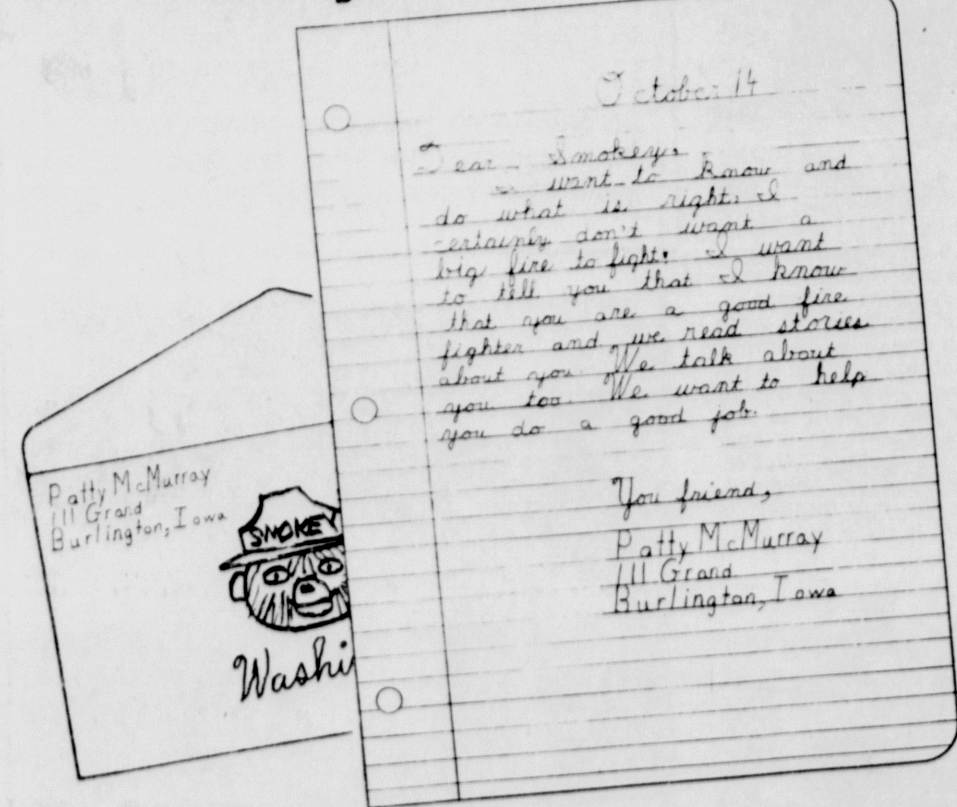 October 14
Dear Smokey,
I want to know and
do what is right. I
certainly don't want a
big fire to fight. I want
to tell you that I know
that you are a good fire
fighter and we read stories
about you. We talk about
you too. We want to help
you do a good job.
You friend,
Patty McMurray
111 Grand
Burlington, Iowa
Patty McMurray
111 Grand
Burlington, Iowa
SMOKE
Washi